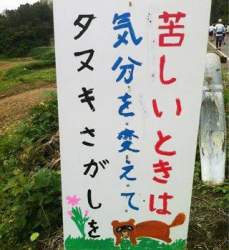 苦しいときは
気分を変えて
タヌキさがしを